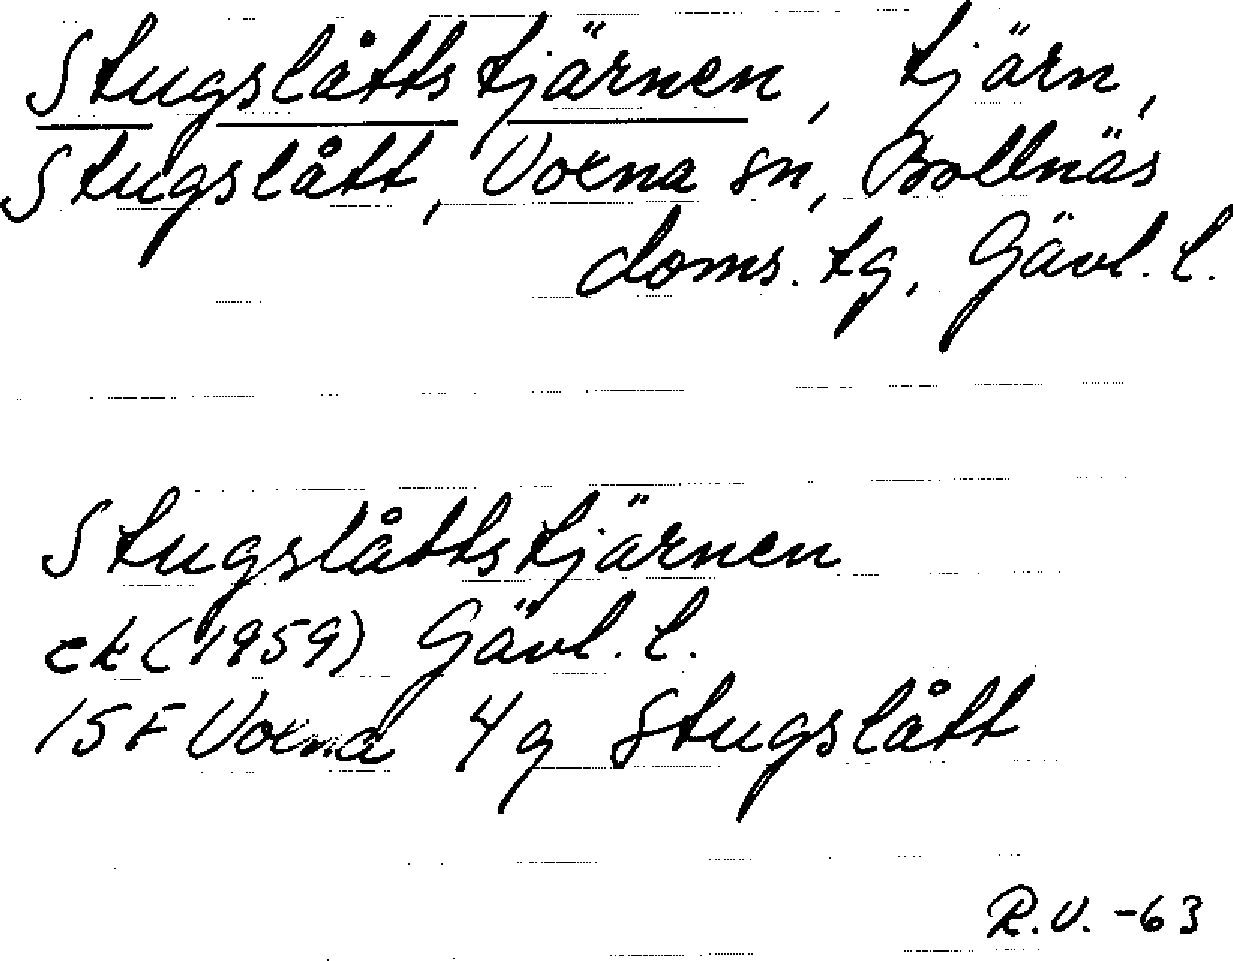 Stugslåttstjärnen, tjärn,
Stugslått, Voxna sn, Bollnäs
doms. tg, Gävl. l.
Stugslåttstjärnen
ek (1959) Gävl. l.
15F Voxna 4g Stugslått
R.V. -63